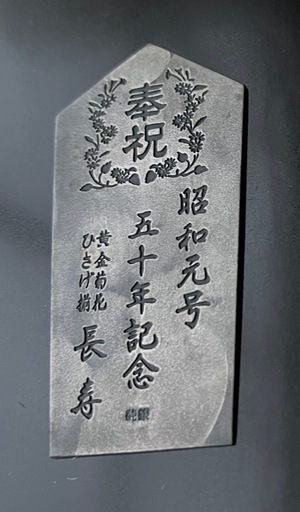 奉祝
昭和元号
五十年記念
黄金菊花
ひさげ揃
長寿
純銀